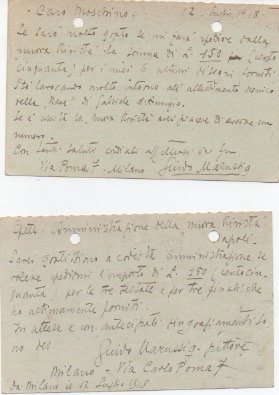 Caro Moscardino. 12 luglio 1918.
Le sarò molto grato se mi farà spedire dalla
nuova Rivista la somma di L. 150 (cento
cinquanta) per i miei 6 di legni forniti
Sto lavorando molto intorno all'allestimento scenico
della "Nave" di Gabriele d'Annunzio.
Se è uscita la nuova Rivista avrei piacere di averne un
numero.
Con tanti saluti cordiali
Via Poma 7. Milano Guido Marussig
Spett. Amministrazione della nuova Rivista
Napoli.
Sarei gratissimo a codesta amministrazione se
volesse spedirmi l'importo di L. 150 (centocin-
quanta) per le tre testate e per tre finali che
ho ultimamente forniti
In attesa e con anticipati ringraziamenti so-
no dev
Guido Marussig - pittore
Milano - Via Carlo Poma 7
da Milano li 12 luglio 1918